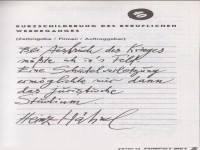 KURZSCHILDERUNG DES BERUFLICHEN
WERDEGANGES
(Zeitangabe / Firmen / Auftraggeber)
Bei Ausbruch des Krieges
mußte ich in's Feld.
Eine Schädelverletzung
ermöglichte mir dann
das juristische
Studium.
Heinz Hähnel